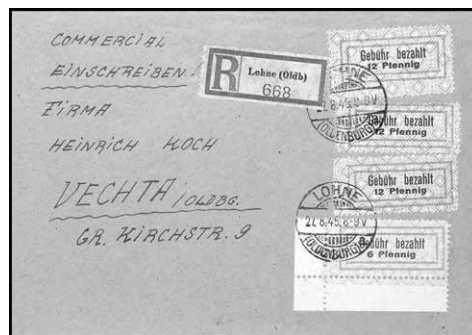 COMMERCIAL
EINSCHREIBEN.
FIRMA
HEINRICH KOCH
VECHTA/OLDBG.
GR. KIRCHSTR. 9
R
Lohne (Oldb)
668
Gebühr bezahlt
12 Pfennig
LOHNE
2.8.45.8-9V
(OLDENBURG)
Gebühr bezahlt
12 Pfennig
Gebühr bezahlt
12 Pfennig
LOHNE
22.8.45.8-9V
(OLDENBURG)
Gebühr bezahlt
6 Pfennig